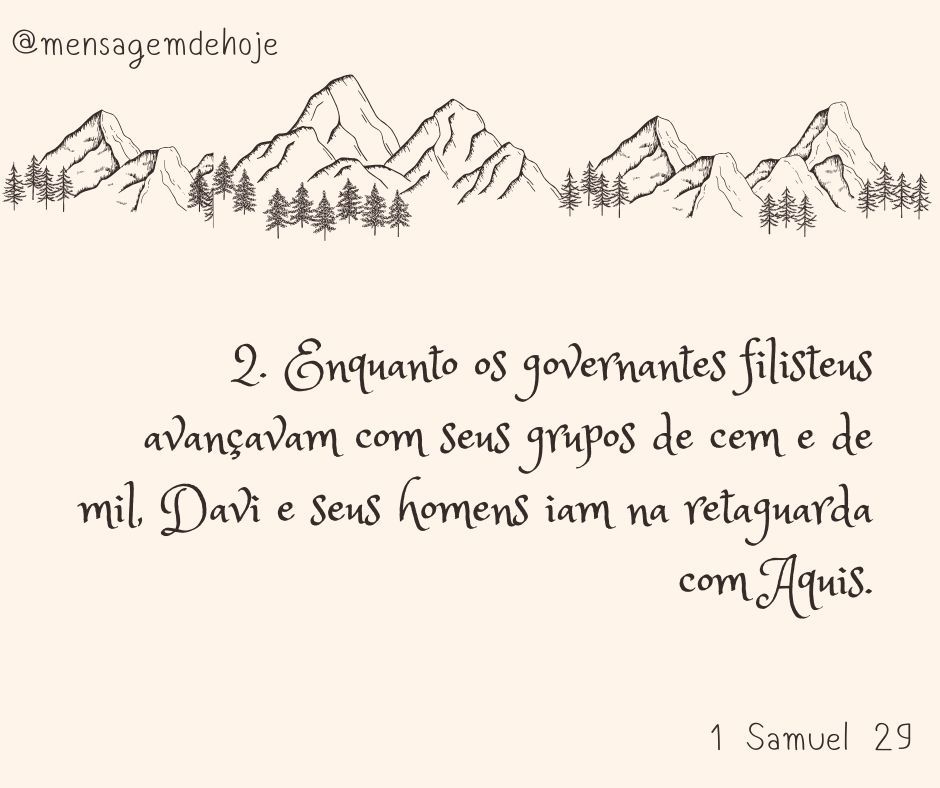 @mensagemdehoje
2. Enquanto os governantes filisteus
avançavam com seus grupos de cem e de
mil, Davi e seus homens iam na retaguarda
com Aquis.
1 Samuel 29